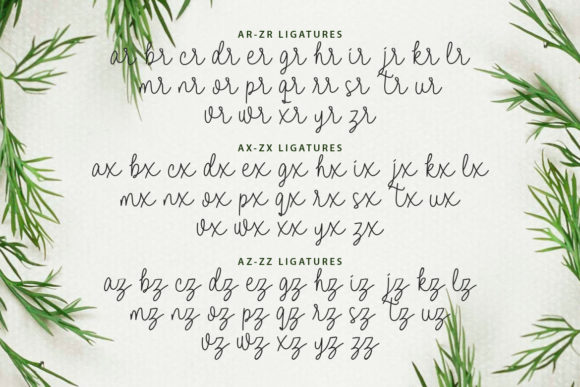 AR-ZR LIGATURES
ar br cr dr er gr hr ir jr kr lr
mr nr or pr qr rr sr tr ur
vr wr xr yr zr
AX-ZX LIGATURES
ax bx cx dx ex gx hx ix jx kx lx
mx nx ox px qx rx sx tx ux
vx wx xx yx zx
AZ-ZZ LIGATURES
az bz cz dz ez gz hz iz jz kz lz
mz nz oz pz qz rz sz tz uz
vz wz xz yz zz